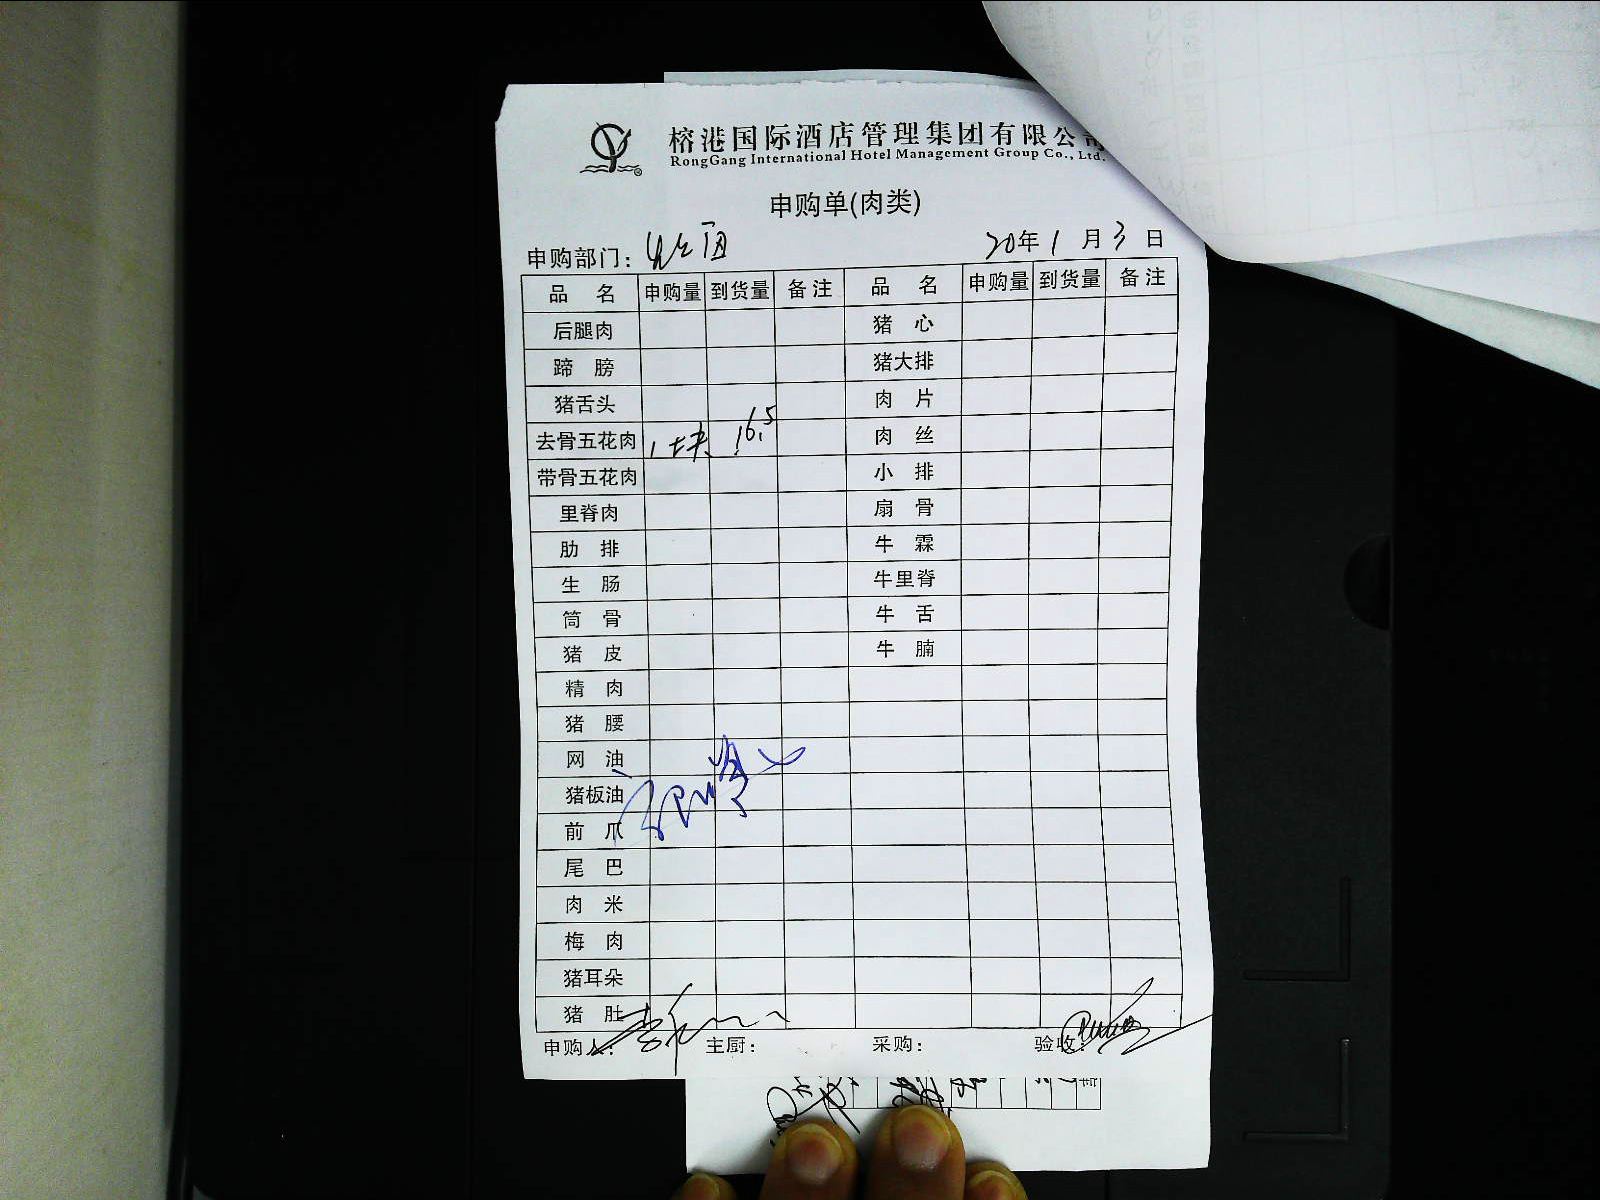 榕港国际酒店管理集团有限公司
RongGang International Hotel Management Group Co., Ltd.
申购单(肉类)
申购部门： 20年1月3日
品名 申购量 到货量 备注 品名 申购量 到货量 备注
后腿肉 猪心
蹄膀 猪大排
猪舌头 肉片
去骨五花肉 1块 16.5 肉丝
带骨五花肉 小排
里脊肉 扇骨
肋排 牛霖
生肠 牛里脊
筒骨 牛舌
猪皮 牛腩
精肉
猪腰
网油
猪板油
前爪
尾巴
肉米
梅肉
猪耳朵
猪肚
申购人： 主厨： 采购： 验收：